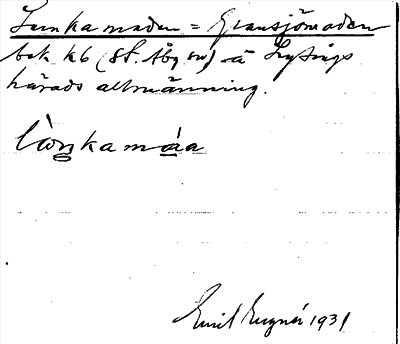 Lunkamaden = Gransjömaden
bek k6 (St. Åby sn) å Lysings
härads allmänning.
Emil Eugner 1931